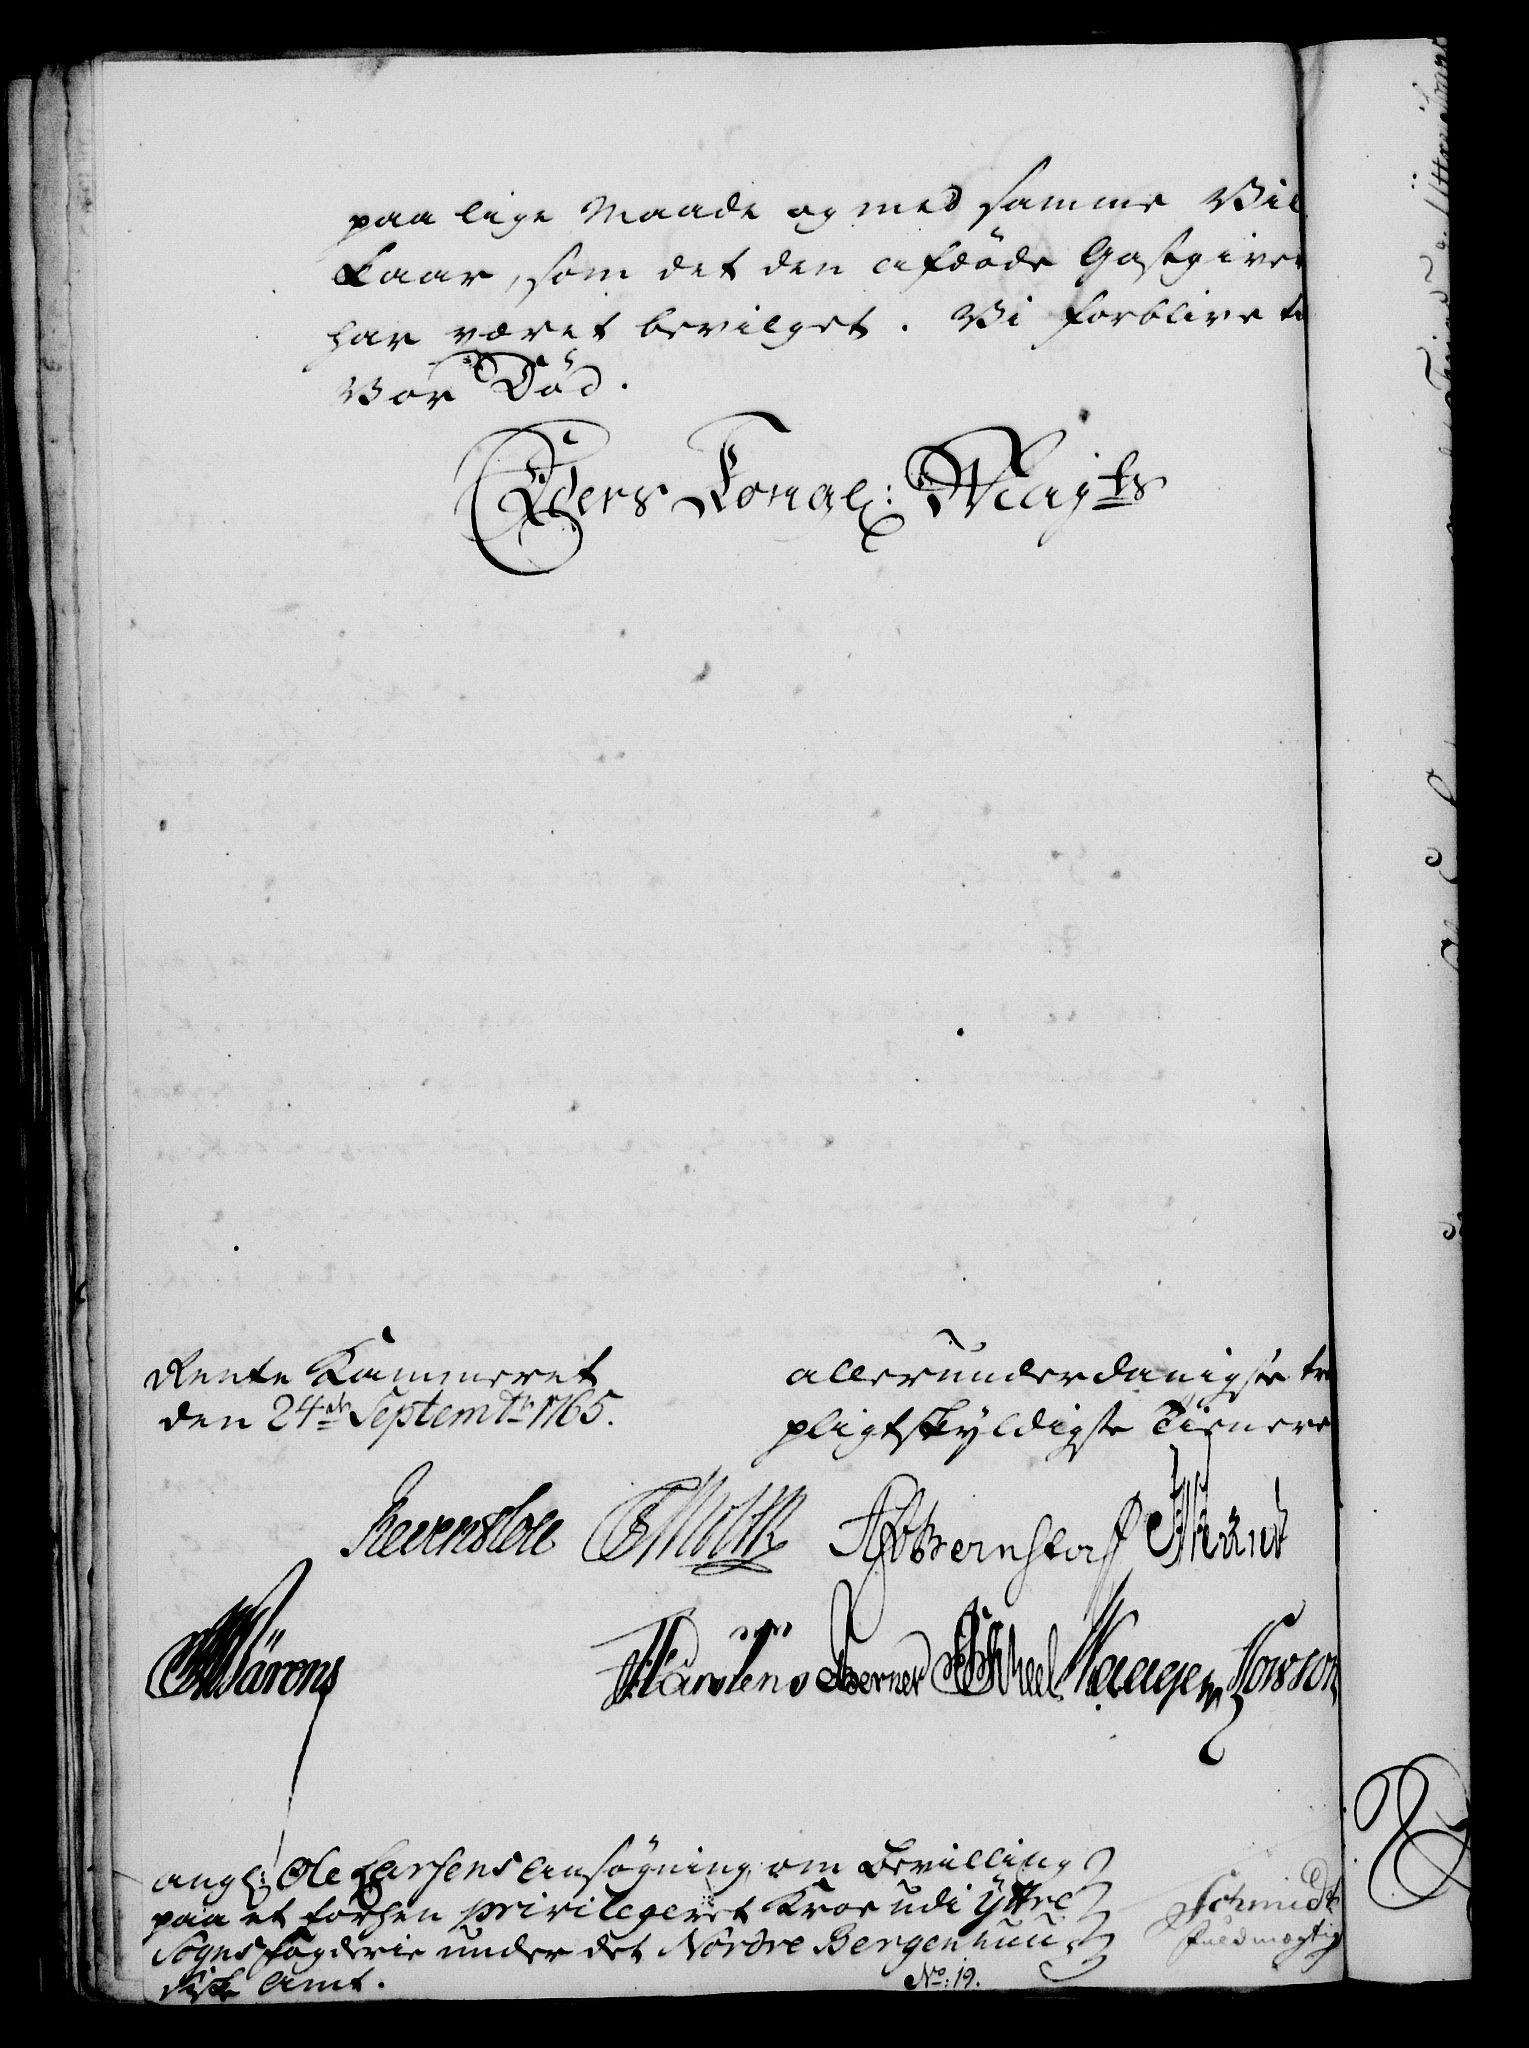 paa lige Maade og med samme Vil
kaar, som det den afdöde Gastgiver
har været bevilget. Vi forblive til
Vor Död.
Eders Kongel: Mayts
Rente Kammeret
den 24de Septembr 1765.
allerunderdanigste tro
pligtskyldigste Tienere
Reventlow Moltk Bernstorf
Bärens Mårtens Berner Scheel Waagen Howson
angl: Ole Larsens Ansögning om Bevilling
paa et forhen privilegeret Kroe udi Ÿttre
Sogns Fogderie under det Nordre Bergenhuu-
siske Amt.
No: 19.
Schmidt
fuldmægtig